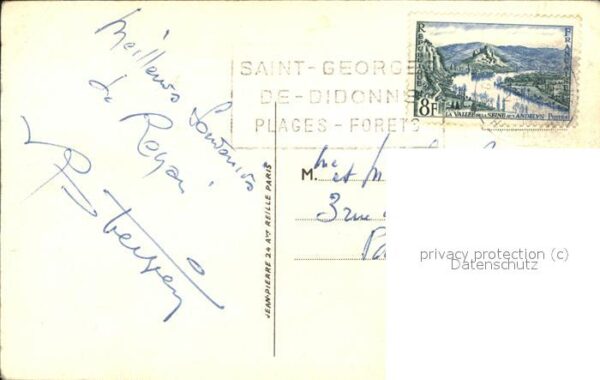 Meilleurs Souvenirs
de Royan
SAINT-GEORGES
DE-DIDONNE
PLAGES-FORETS
REPUBLIQUE
FRANCAISE
8F
LA VALLEE DE LA SEINE AUX ANDELYS Postes
M. et M
3 rue
Pa
JEAN-PIERRE 24 Ave REILLE PARIS
privacy protection (c)
Datenschutz